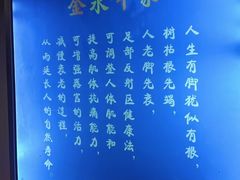 人生有脚犹似有根，
树枯根先竭，
人老脚先衰，
足部反射区健康法，
可调整人体机能和
提高肌体抗病能力，
可增强器官的活力，
减慢衰老的过程，
从而延长人的自然寿命